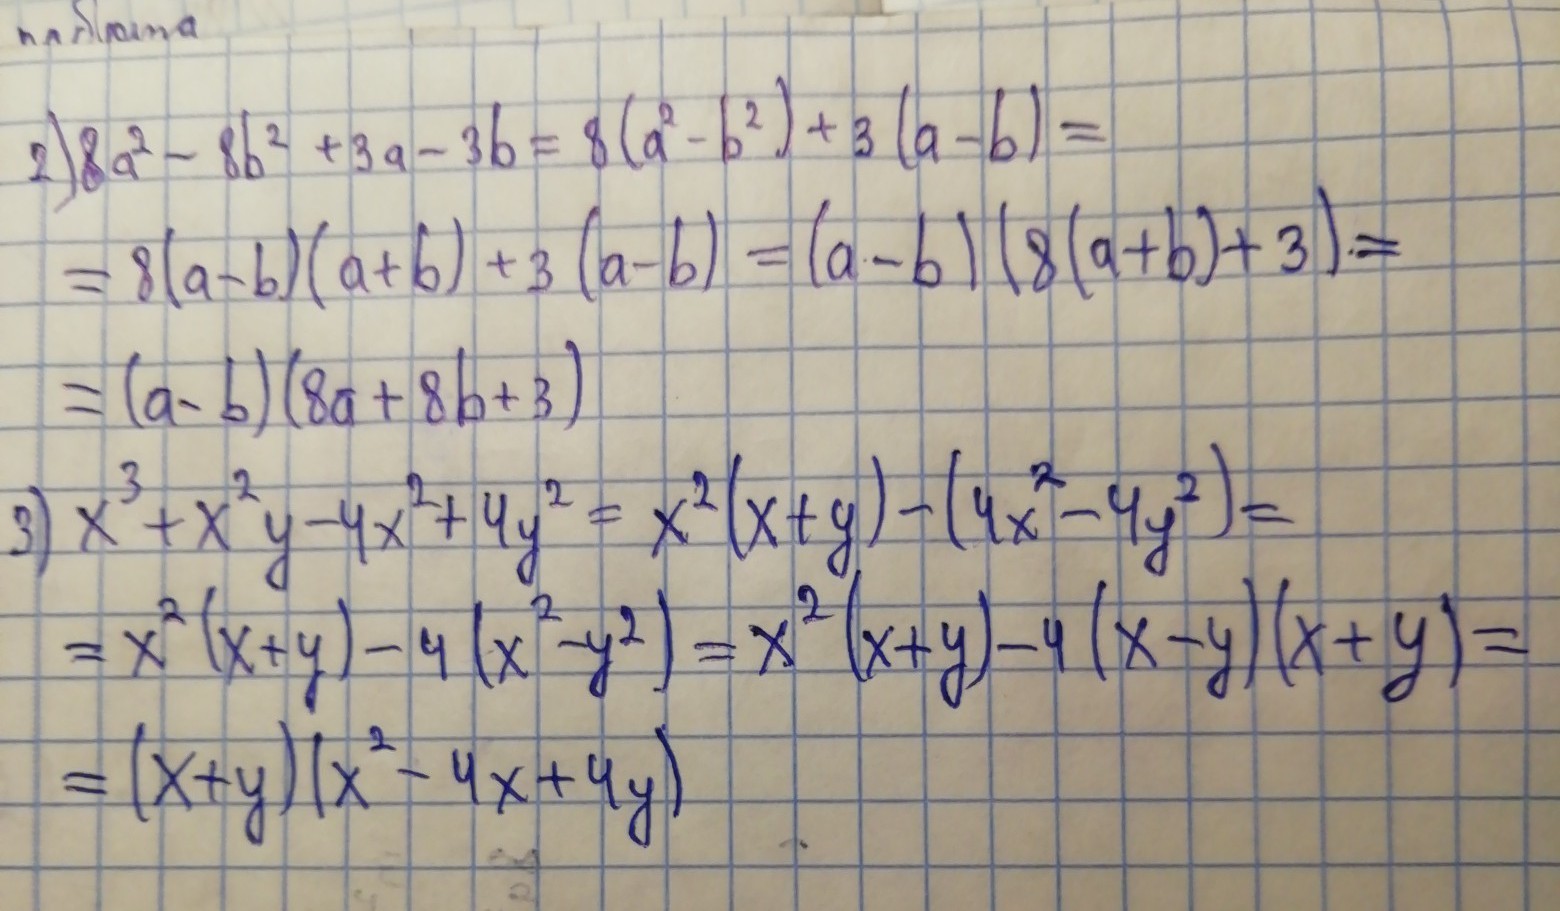 2) 8a² - 8b² + 3a - 3b = 8(a² - b²) + 3(a - b) =
= 8(a - b)(a + b) + 3(a - b) = (a - b)(8(a + b) + 3) =
= (a - b)(8a + 8b + 3)
3) x³ + x²y - 4x² + 4y² = x²(x + y) - (4x² - 4y²) =
= x²(x + y) - 4(x² - y²) = x²(x + y) - 4(x - y)(x + y) =
= (x + y)(x² - 4x + 4y)